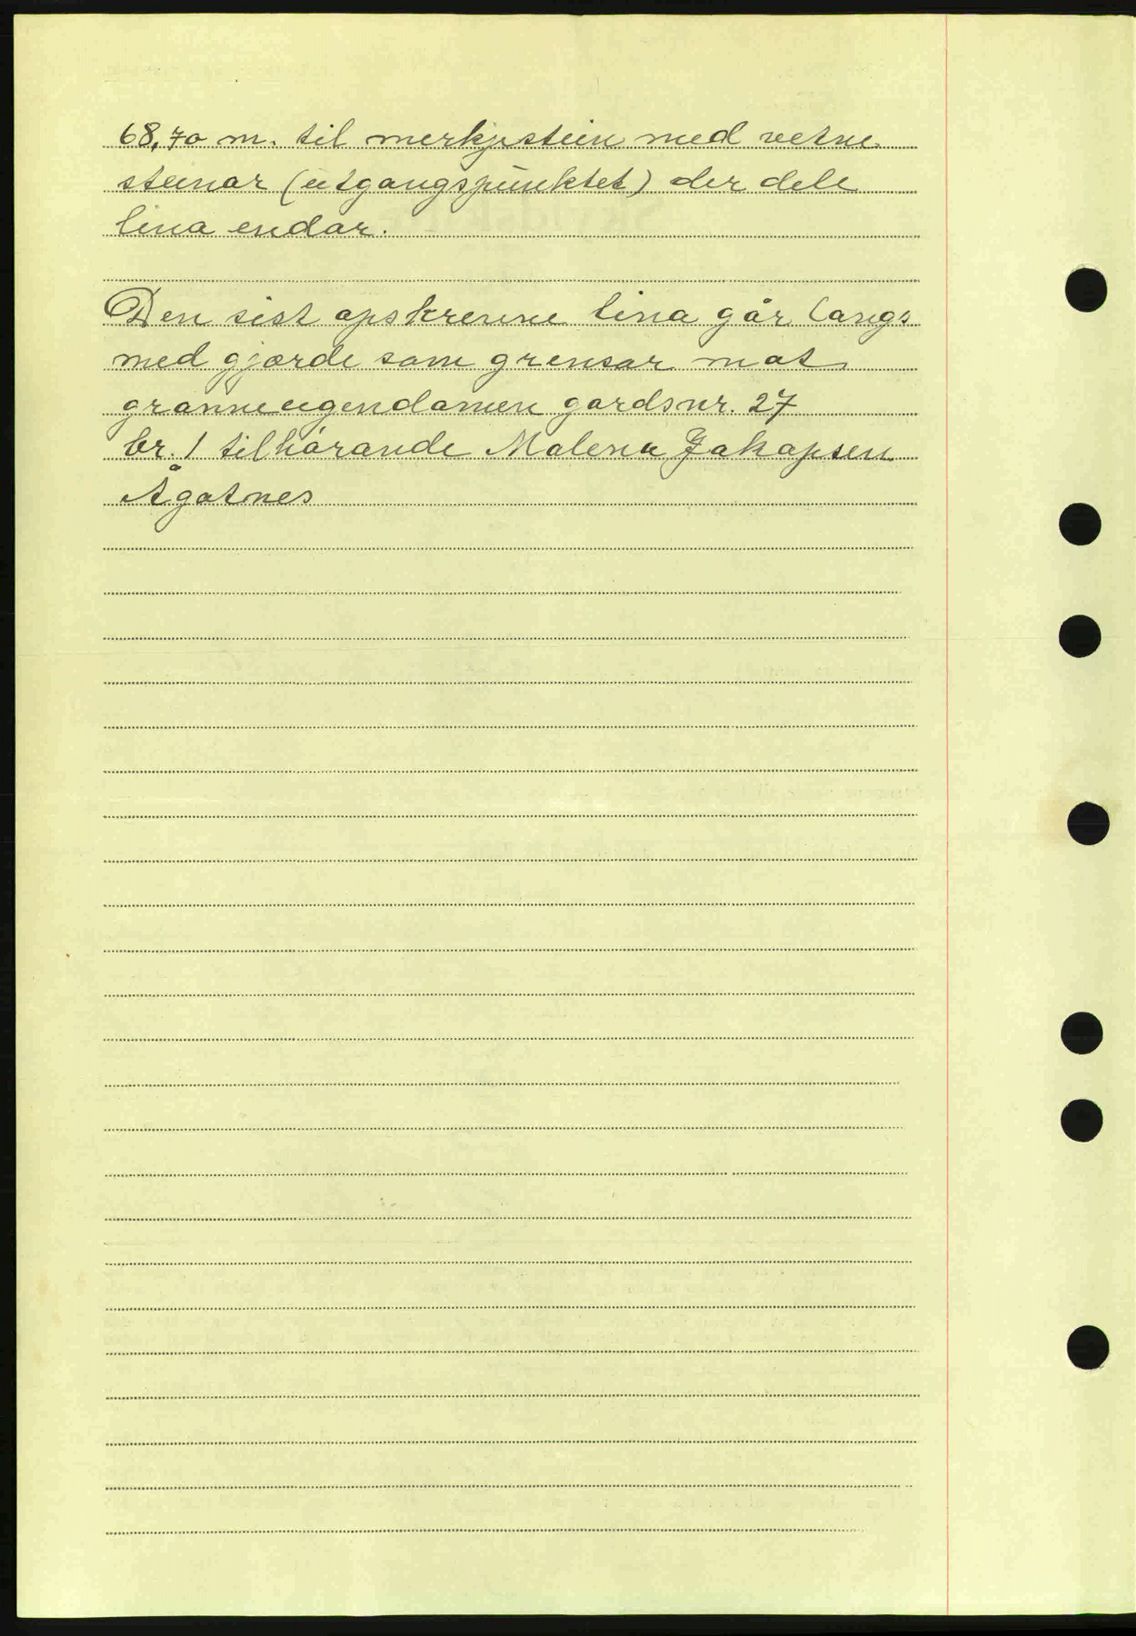 68,70 m. til merkjestein med vetne
steinar (utgangspunktet) der dele
lina endar.
Den sist opskrevne lina går langs
med gjærde som grensar mot
granneeigendomen gardsnr. 27
br. 1 tilhørande Malena Jakopsen
Ågotnes